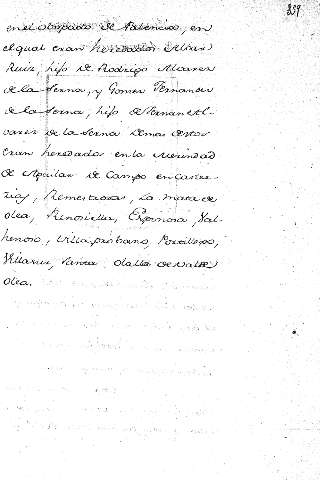 259
en el obispado de Palencia, en
el qual eran heredados Alvar
Ruiz, hijo de Rodrigo Alvarez
de la Serna, y Gomez Fernandez
de la Serna, hijo de Fernan Al-
varez de la Serna. Demas destos
eran heredados en la Merindad
de Aguilar de Campo en
, Rementeria, La mata de
olea, Renosilla, Espinosa, Val-
henoso, Villa , ,
Villanuz, Santa olalla de Valde
olea.